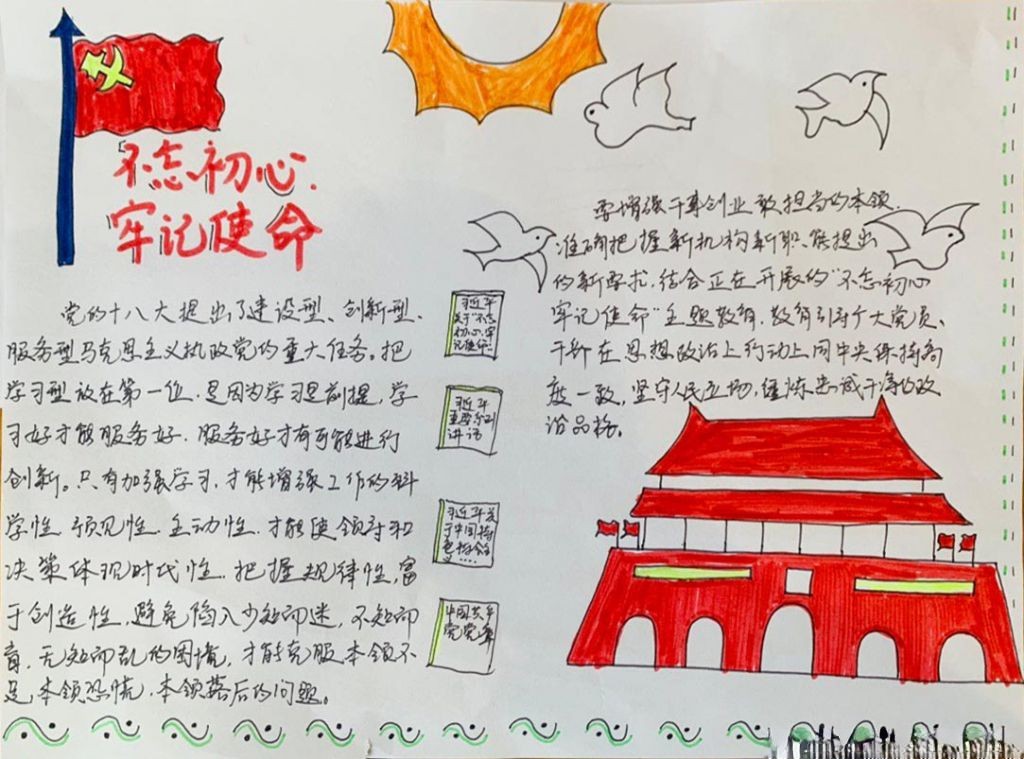 不忘初心.
牢记使命
党的十八大提出了建设型、创新型、
服务型马克思主义执政党的重大任务。把
学习型放在第一位,是因为学习是前提,学
习好才能服务好,服务好才有可能进行
创新。只有加强学习,才能增强工作的科
学性、预见性、主动性,才能使领导和
决策体现时代性、把握规律性,富
于创造性,避免陷入少知而迷,不知而
盲,无知而乱的困境,才能克服本领不
足,本领恐慌,本领落后的问题。
习近平
关于"不忘
初心、牢
记使命"
习近平
重要系列
讲话
习近平关
于中国特
色社会主
义……
中国共产
党党章
要增强干事创业敢担当的本领,
准确把握新机构新职、能提出
的新要求,结合正在开展的"不忘初心
牢记使命"主题教育,教育引导广大党员、
干部在思想政治上行动上同中央保持高
度一致,坚守人民立场,锤炼忠诚干净的政
治品格。